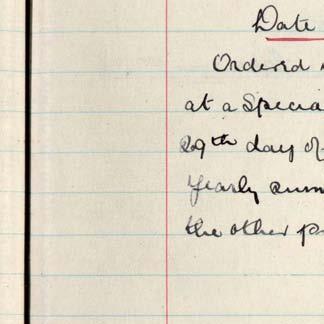 Date
Ordered
at a Specia
29th day of
Yearly sum
the other pr